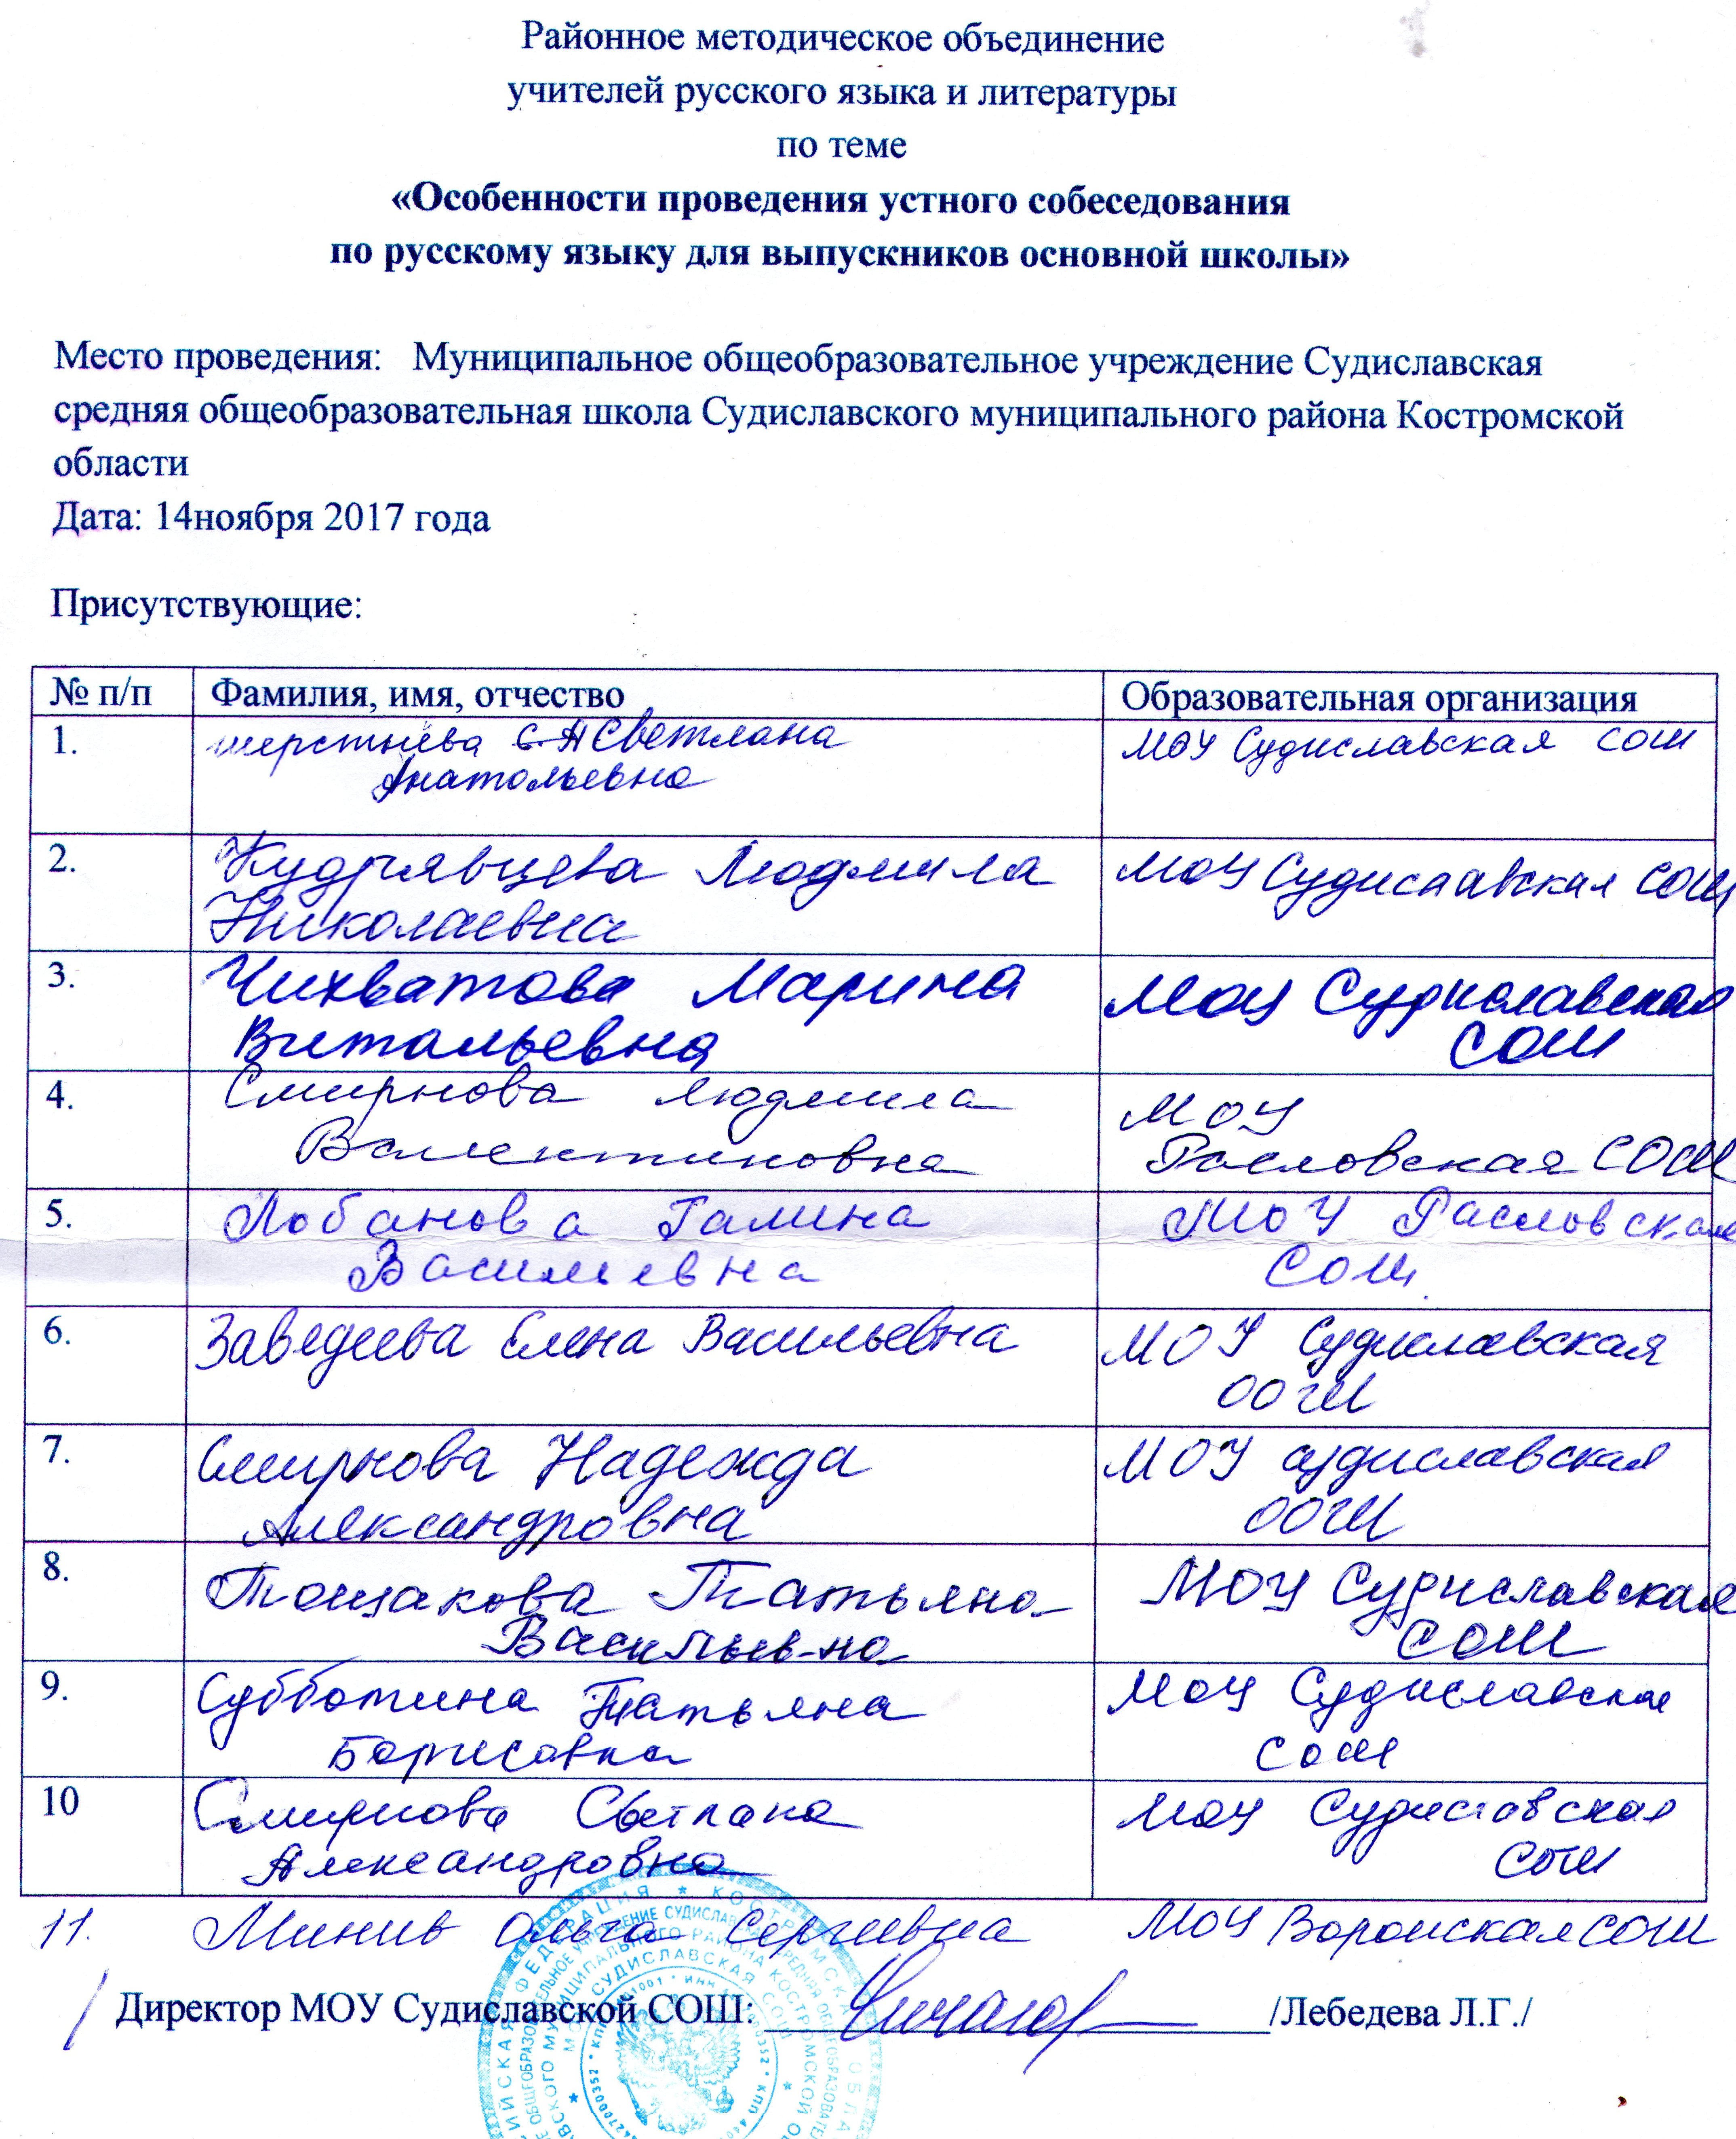 Районное методическое объединение
учителей русского языка и литературы
по теме
«Особенности проведения устного собеседования
по русскому языку для выпускников основной школы»
Место проведения: Муниципальное общеобразовательное учреждение Судиславская
средняя общеобразовательная школа Судиславского муниципального района Костромской
области
Дата: 14ноября 2017 года
Присутствующие:
№ п/п Фамилия, имя, отчество Образовательная организация
1. Шерстнёва Светлана МОУ Судиславская СОШ
Анатольевна
2. Кудрявцева Людмила МОУ Судиславская СОШ
Николаевна
3. Чихватова Марина МОУ Судиславская
Витальевна СОШ
4. Смирнова Людмила МОУ
Валентиновна Расловская СОШ
5. Лобанова Галина МОУ Расловская
Васильевна СОШ.
6. Заведеева Елена Васильевна МОУ Судиславская
ООШ
7. Смирнова Надежда МОУ Судиславская
Александровна ООШ
8. Тощакова Татьяна МОУ Судиславская
Васильевна СОШ
9. Субботина Татьяна МОУ Судиславская
Борисовна СОШ
10 Смирнова Светлана МОУ Судиславская
Александровна СОШ
11. Ольга Сергеевна МОУ Воронская СОШ
Директор МОУ Судиславской СОШ: /Лебедева Л.Г./